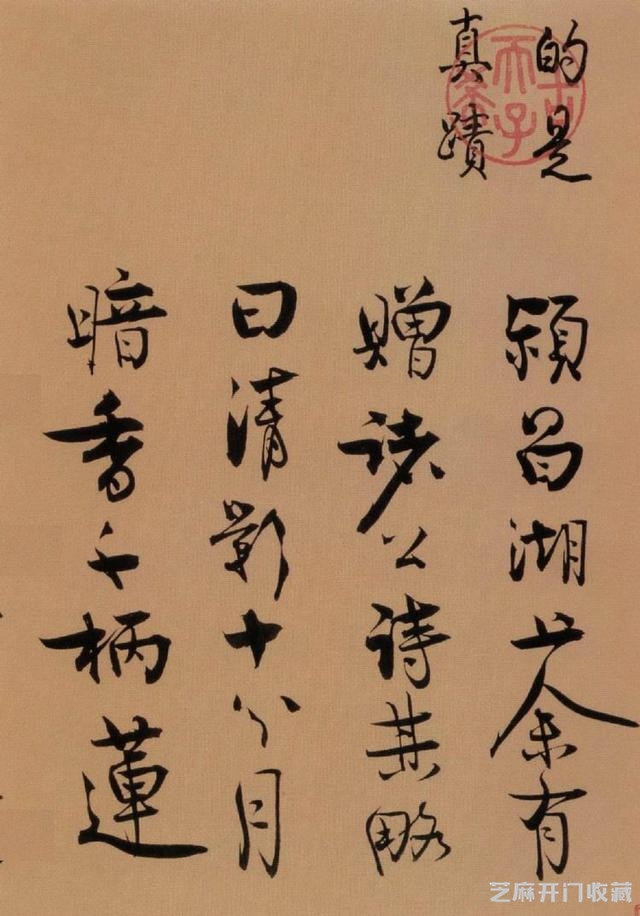 的是
真蹟
颍昌湖上余有
赠诸公诗其略
曰清影十分月
暗香千柄蓮
芝麻开门收藏